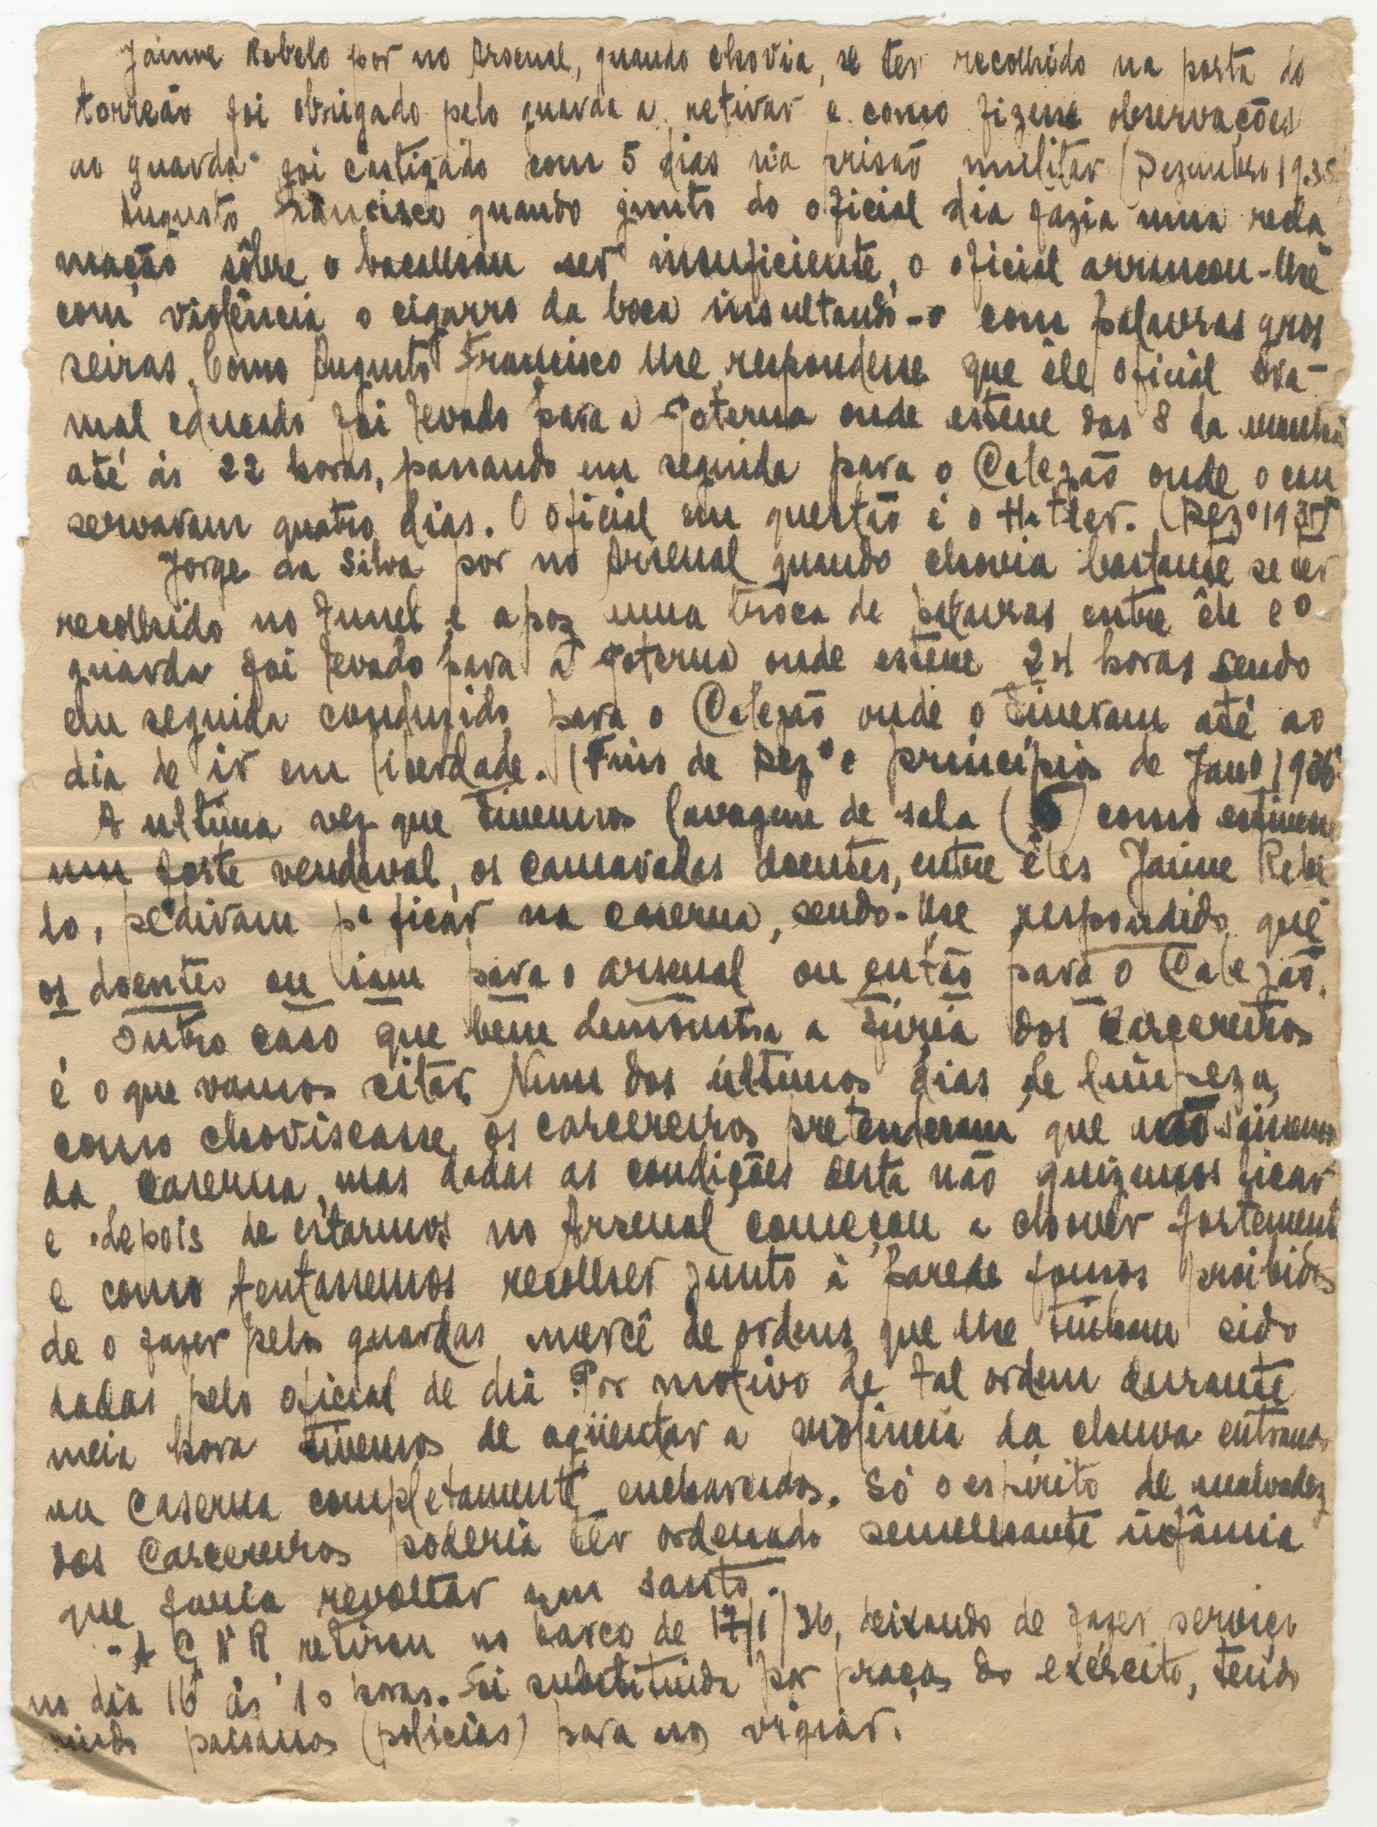 Jaime Rebelo por no Arsenal, quando chovia, se ter recolhido na porta do
torreão foi obrigado pelo guarda a retirar e como fizesse observações
ao guarda foi castigado com 5 dias na prisão militar (Dezembro 1935
Augusto Francisco quando junto do oficial dia fazia uma recla
mação sôbre o bacalhau ser insuficiente, o oficial arrancou-lhe
com violência o cigarro da boca insultando-o com palavras gros
seiras. Como Augusto Francisco lhe respondesse que êle oficial era
mal educado foi levado para a poterna onde esteve das 8 da manhã
até ás 22 horas, passando em seguida para o Calejão onde o con
servaram quatro dias. O oficial em questão é o Hitler. (Dezº 1935)
Jorge da Silva por no Arsenal quando chovia bastante se ter
recolhido no tunel e apoz uma troca de palavras entre êle e o
guarda foi levado para a poterna onde esteve 24 horas sendo
em seguida conduzido para o Calejão onde o tiveram até ao
dia de ir em liberdade. (Fins de Dezº e princípios de Janº 1936
A ultima vez que tivemos lavagem de sala ( ) como estivesse
um forte vendaval, os camaradas doentes, entre êles Jaime Rebe
lo, pediram pª ficar na caserna, sendo-lhe respondido que
os doentes ou iam para o arsenal ou então para o Calejão.
Outro caso que bem demonstra a fúria dos carcereiros
é o que vamos citar. Num dos últimos dias de limpeza,
como choviscasse, os carcereiros pretenderam que não saissemos
da caserna, mas dadas as condições desta não quizemos ficar
e depois de estarmos no Arsenal começou a chover fortement
e como tentassemos recolher junto á parede fomos proibidos
de o fazer pelos guardas mercê de ordens que lhe tinham sido
dadas pelo oficial de dia Por motivo de tal ordem durante
meia hora tivemos de agüentar a violência da chuva entrando
na caserna completamente encharcados. Só o espírito de malvadez
dos carcereiros poderia ter ordenado semelhante infâmia
que faria revoltar um santo.
- A G N R retirou no barco de 17/1/36, deixando de fazer serviço
no dia 16 ás 10 horas. Foi substituida por praças do exército, tendo
vindo paisanos (policias) para nos vigiar.